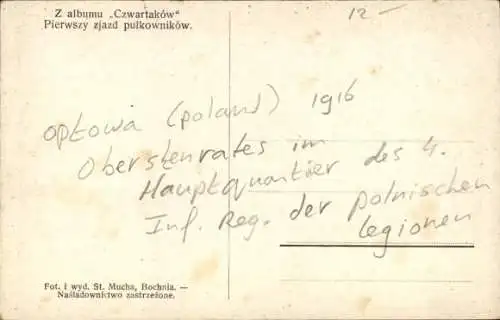 Z albumu „Czwartaków“
Pierwszy zjazd pułkowników.
12 —
Optowa (poland) 1916
Oberstenrates im
Hauptquartier des 4.
Inf. Reg. der polnischen
legionen
Fot. i wyd. St. Mucha, Bochnia. —
Naśladownictwo zastrzeżone.